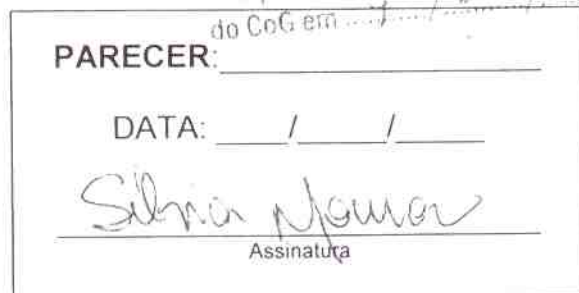 do CoG em ..../..../....
PARECER:
DATA: / /
Silvia
Assinatura